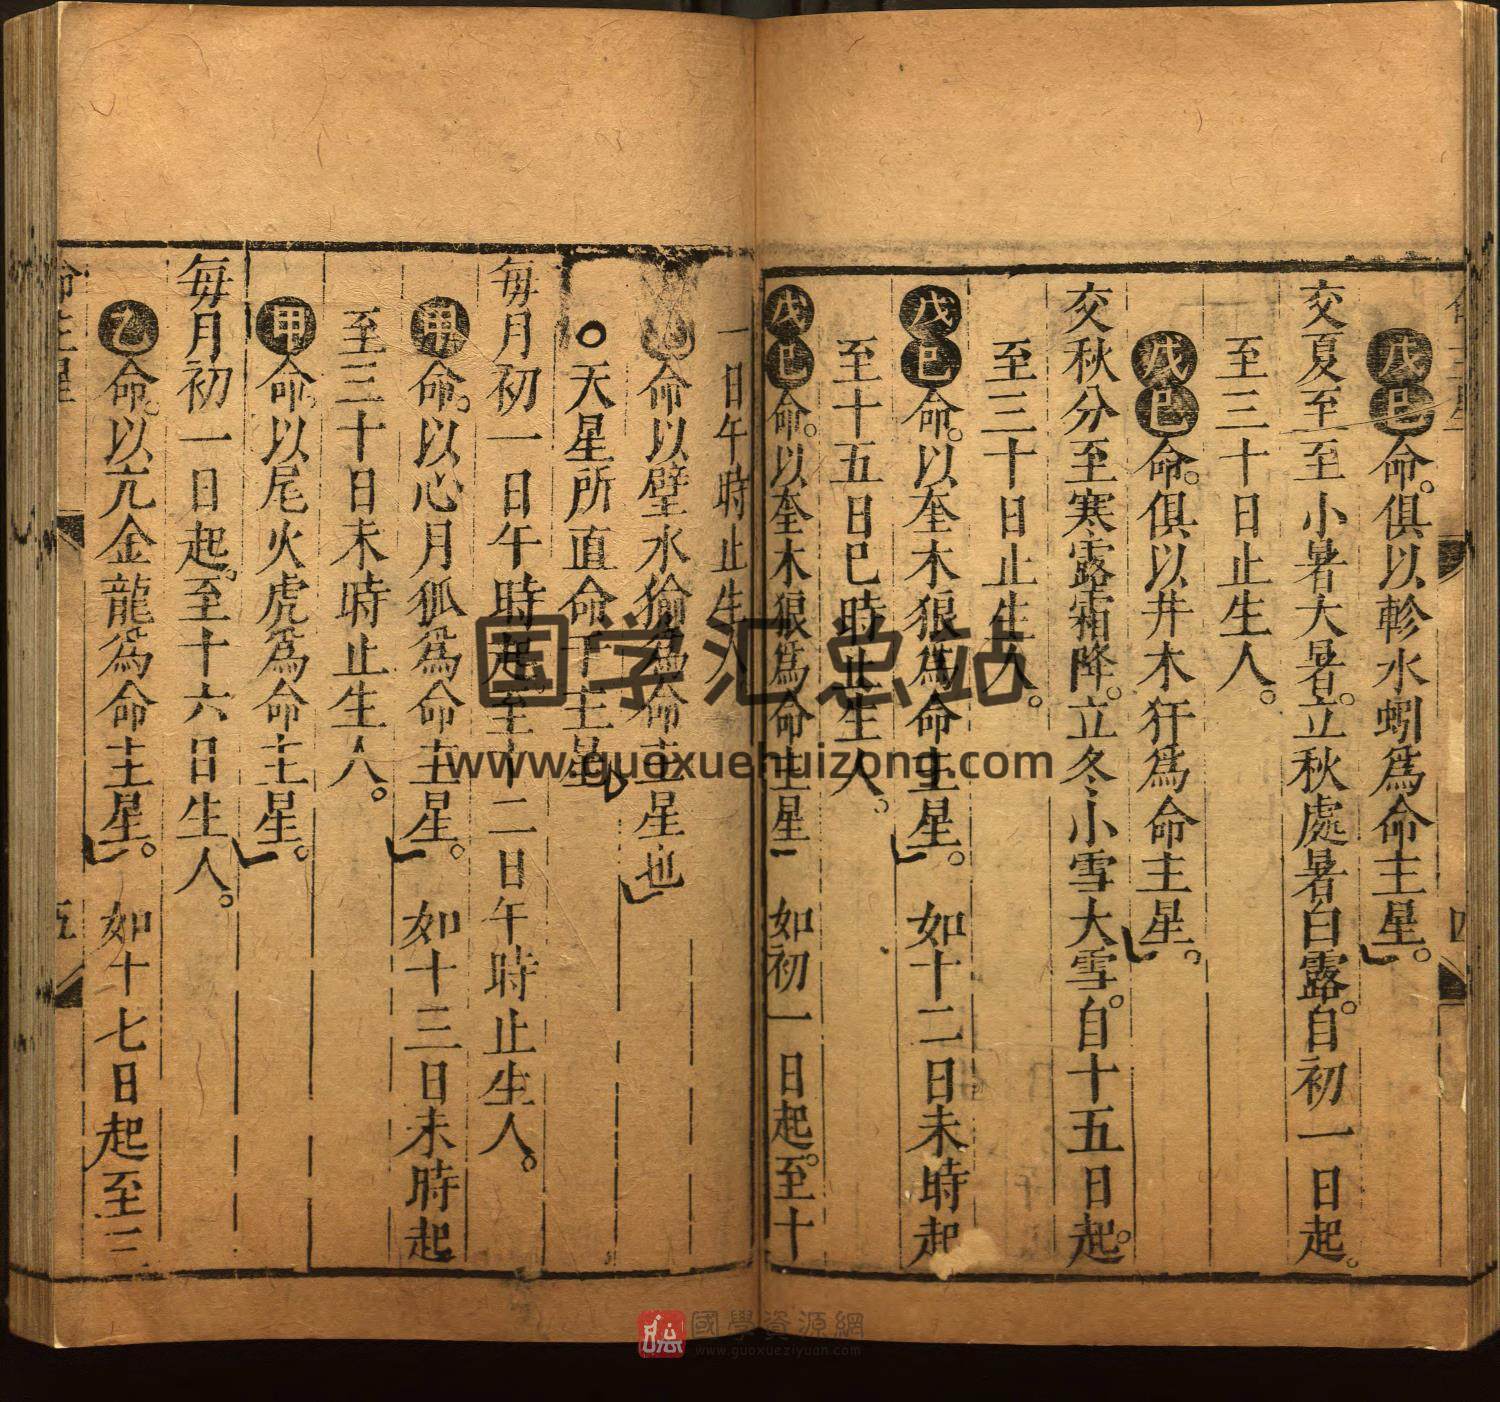 戊巳命。俱以軫水蚓爲命主星。
交夏至至小暑大暑。立秋處暑白露。自初一日起。
至三十日止生人。
戊巳命。俱以井木犴爲命主星。
交秋分至寒露霜降。立冬小雪大雪。自十五日起。
至三十日止生人。
戊巳命。以奎木狼爲命主星。 如十二日未時起
至十五日巳時止生人。
戊巳命。以奎木狼爲命主星 如初一日起。至十
一日午時止生人
命以壁水㺄爲命主星也
○天星所直命于主星
每月初一日午時起。至十二日午時止生人。
甲命。以心月狐爲命主星。 如十三日未時起
至三十日未時止生人。
甲命。以尾火虎爲命主星。
每月初一日起。至十六日生人。
乙命。以亢金龍爲命主星。 如十七日起至三
命主星
五
四
国学汇总站
www.guoxuehuizong.com
國學資源網
www.guoxueziyuan.com